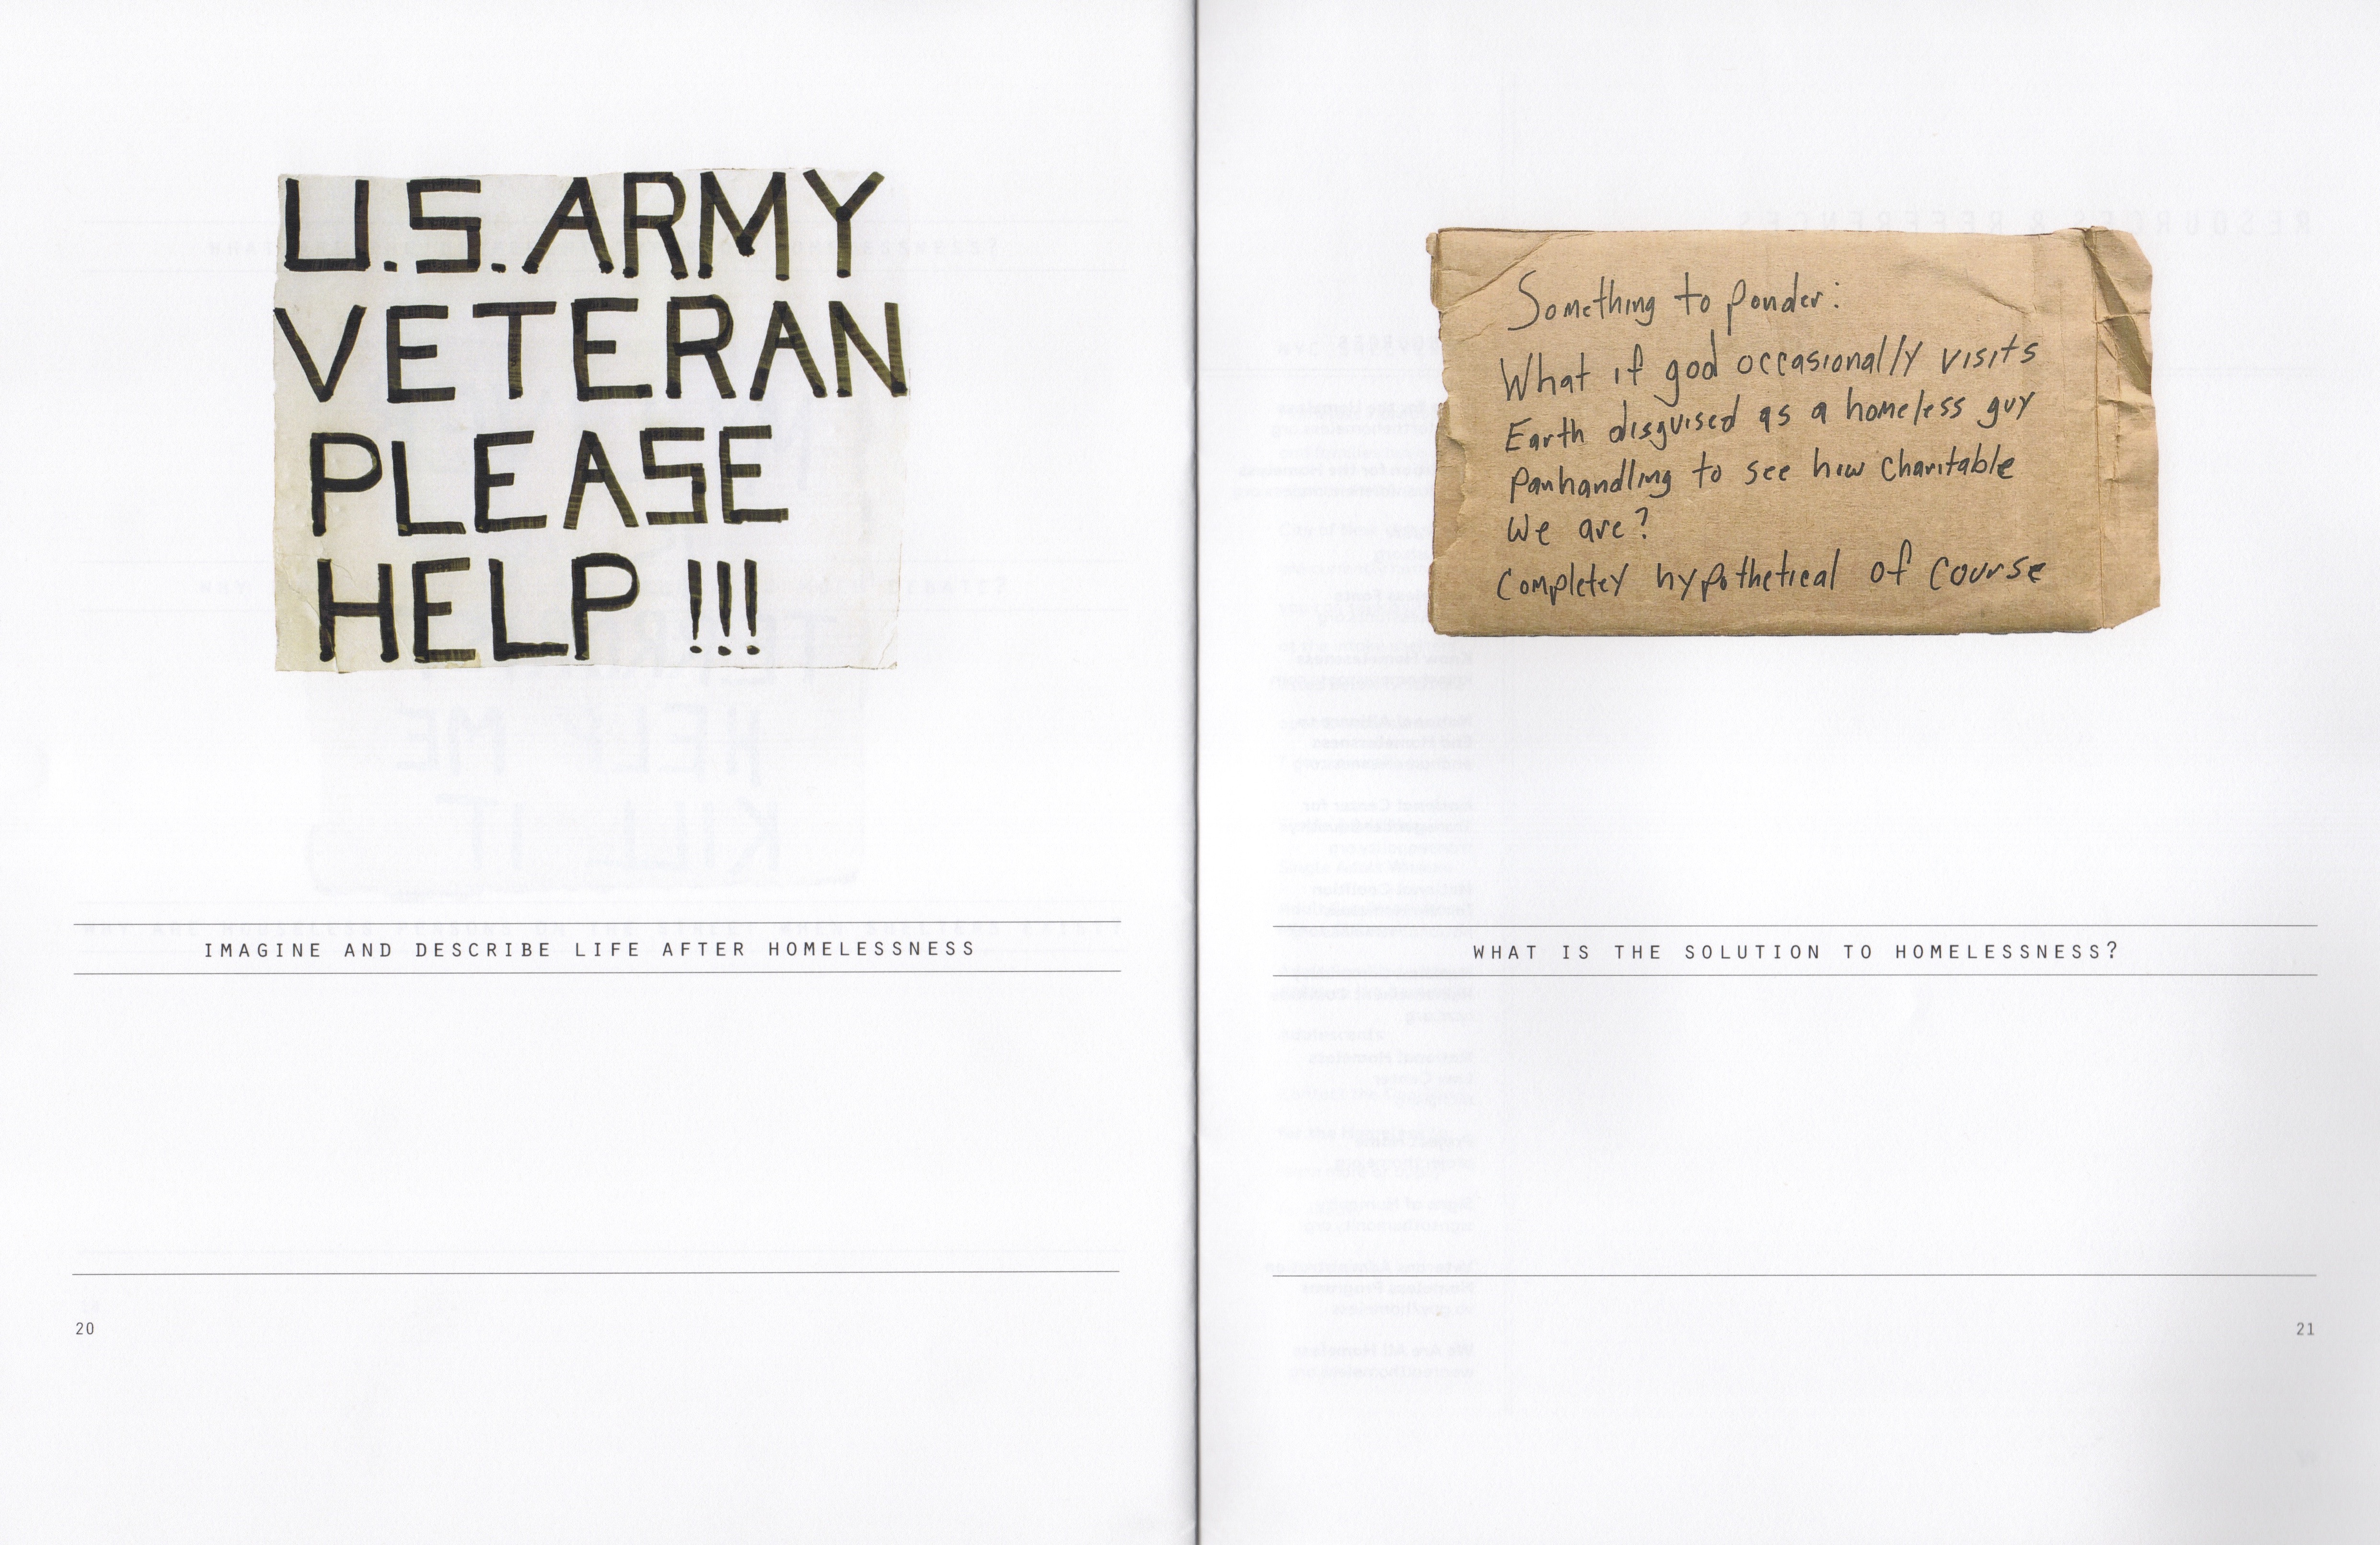 U.S. ARMY
VETERAN
PLEASE
HELP !!!
IMAGINE AND DESCRIBE LIFE AFTER HOMELESSNESS
20
Something to ponder:
What if god occasionally visits
Earth disguised as a homeless guy
Panhandling to see how charitable
We are?
Completey hypothetical of course
WHAT IS THE SOLUTION TO HOMELESSNESS?
21